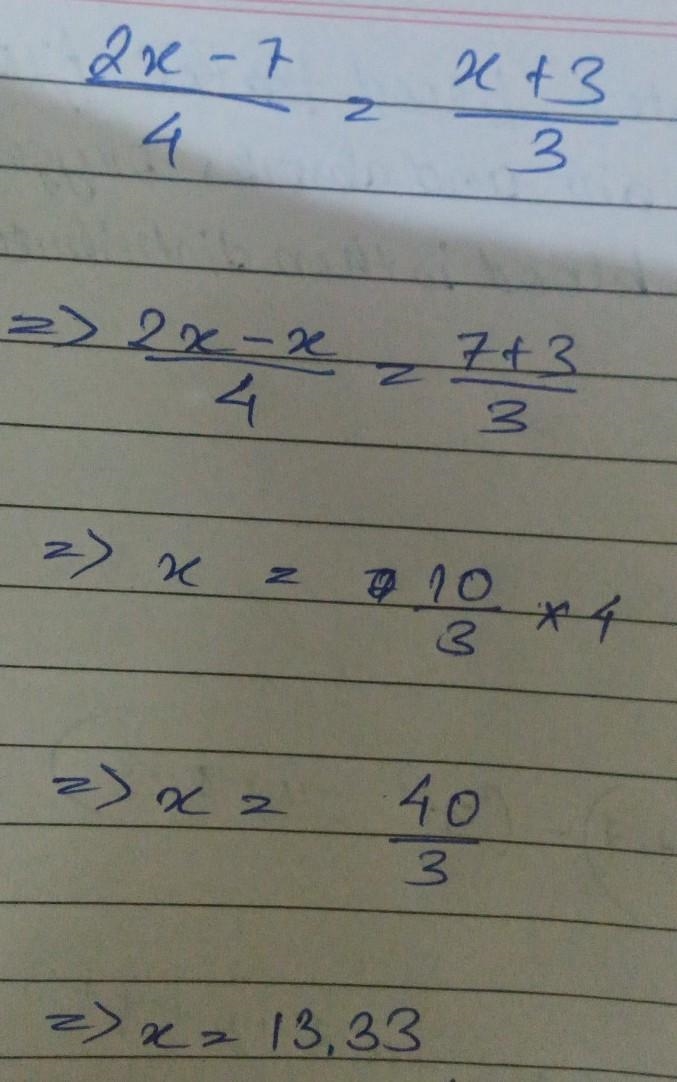 2x - 7 / 4 = x + 3 / 3
=> 2x - x / 4 = 7 + 3 / 3
=> x = 10 / 3 × 4
=> x = 40 / 3
=> x = 13.33